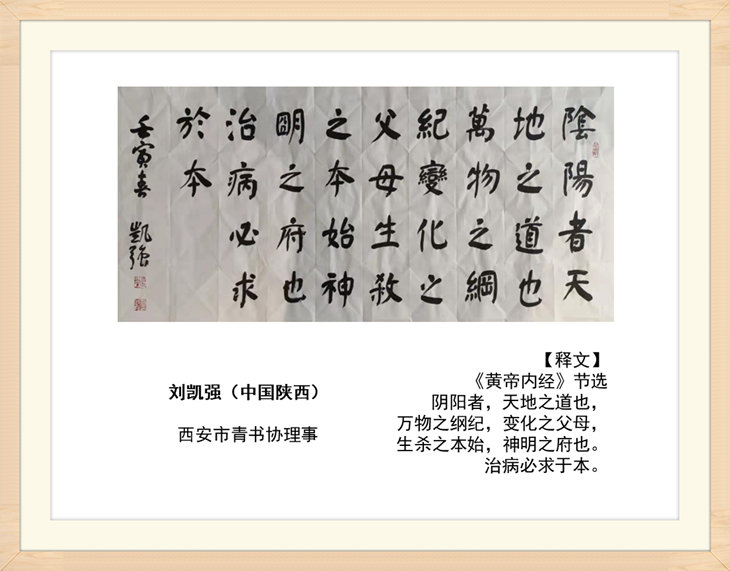 陰陽者天
地之道也
萬物之綱
紀變化之
父母生殺
之本始神
明之府也
治病必求
於本
壬寅春 凱強
刘凯强（中国陕西）
西安市青书协理事
【释文】
《黄帝内经》节选
阴阳者，天地之道也，
万物之纲纪，变化之父母，
生杀之本始，神明之府也。
治病必求于本。